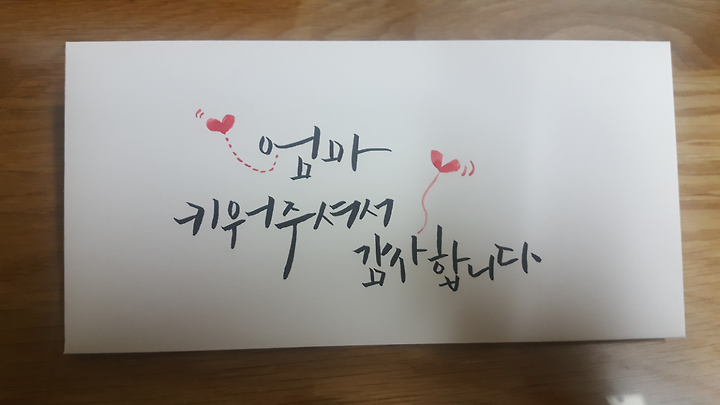 엄마
키워주셔서
감사합니다.